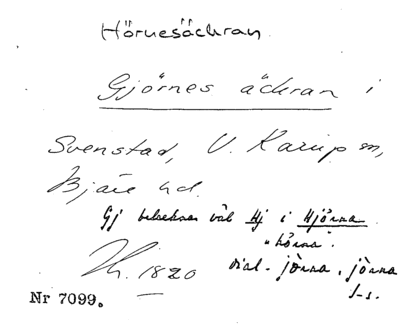 Hörnesäckran
Gjörnes äckran i
Svenstad, V. Karup sn,
Bjäre hd.
Gj betecknar väl Hj i Hjörna
"hörna".
Th. 1820 dial. jörna, jörna
Nr 7099.